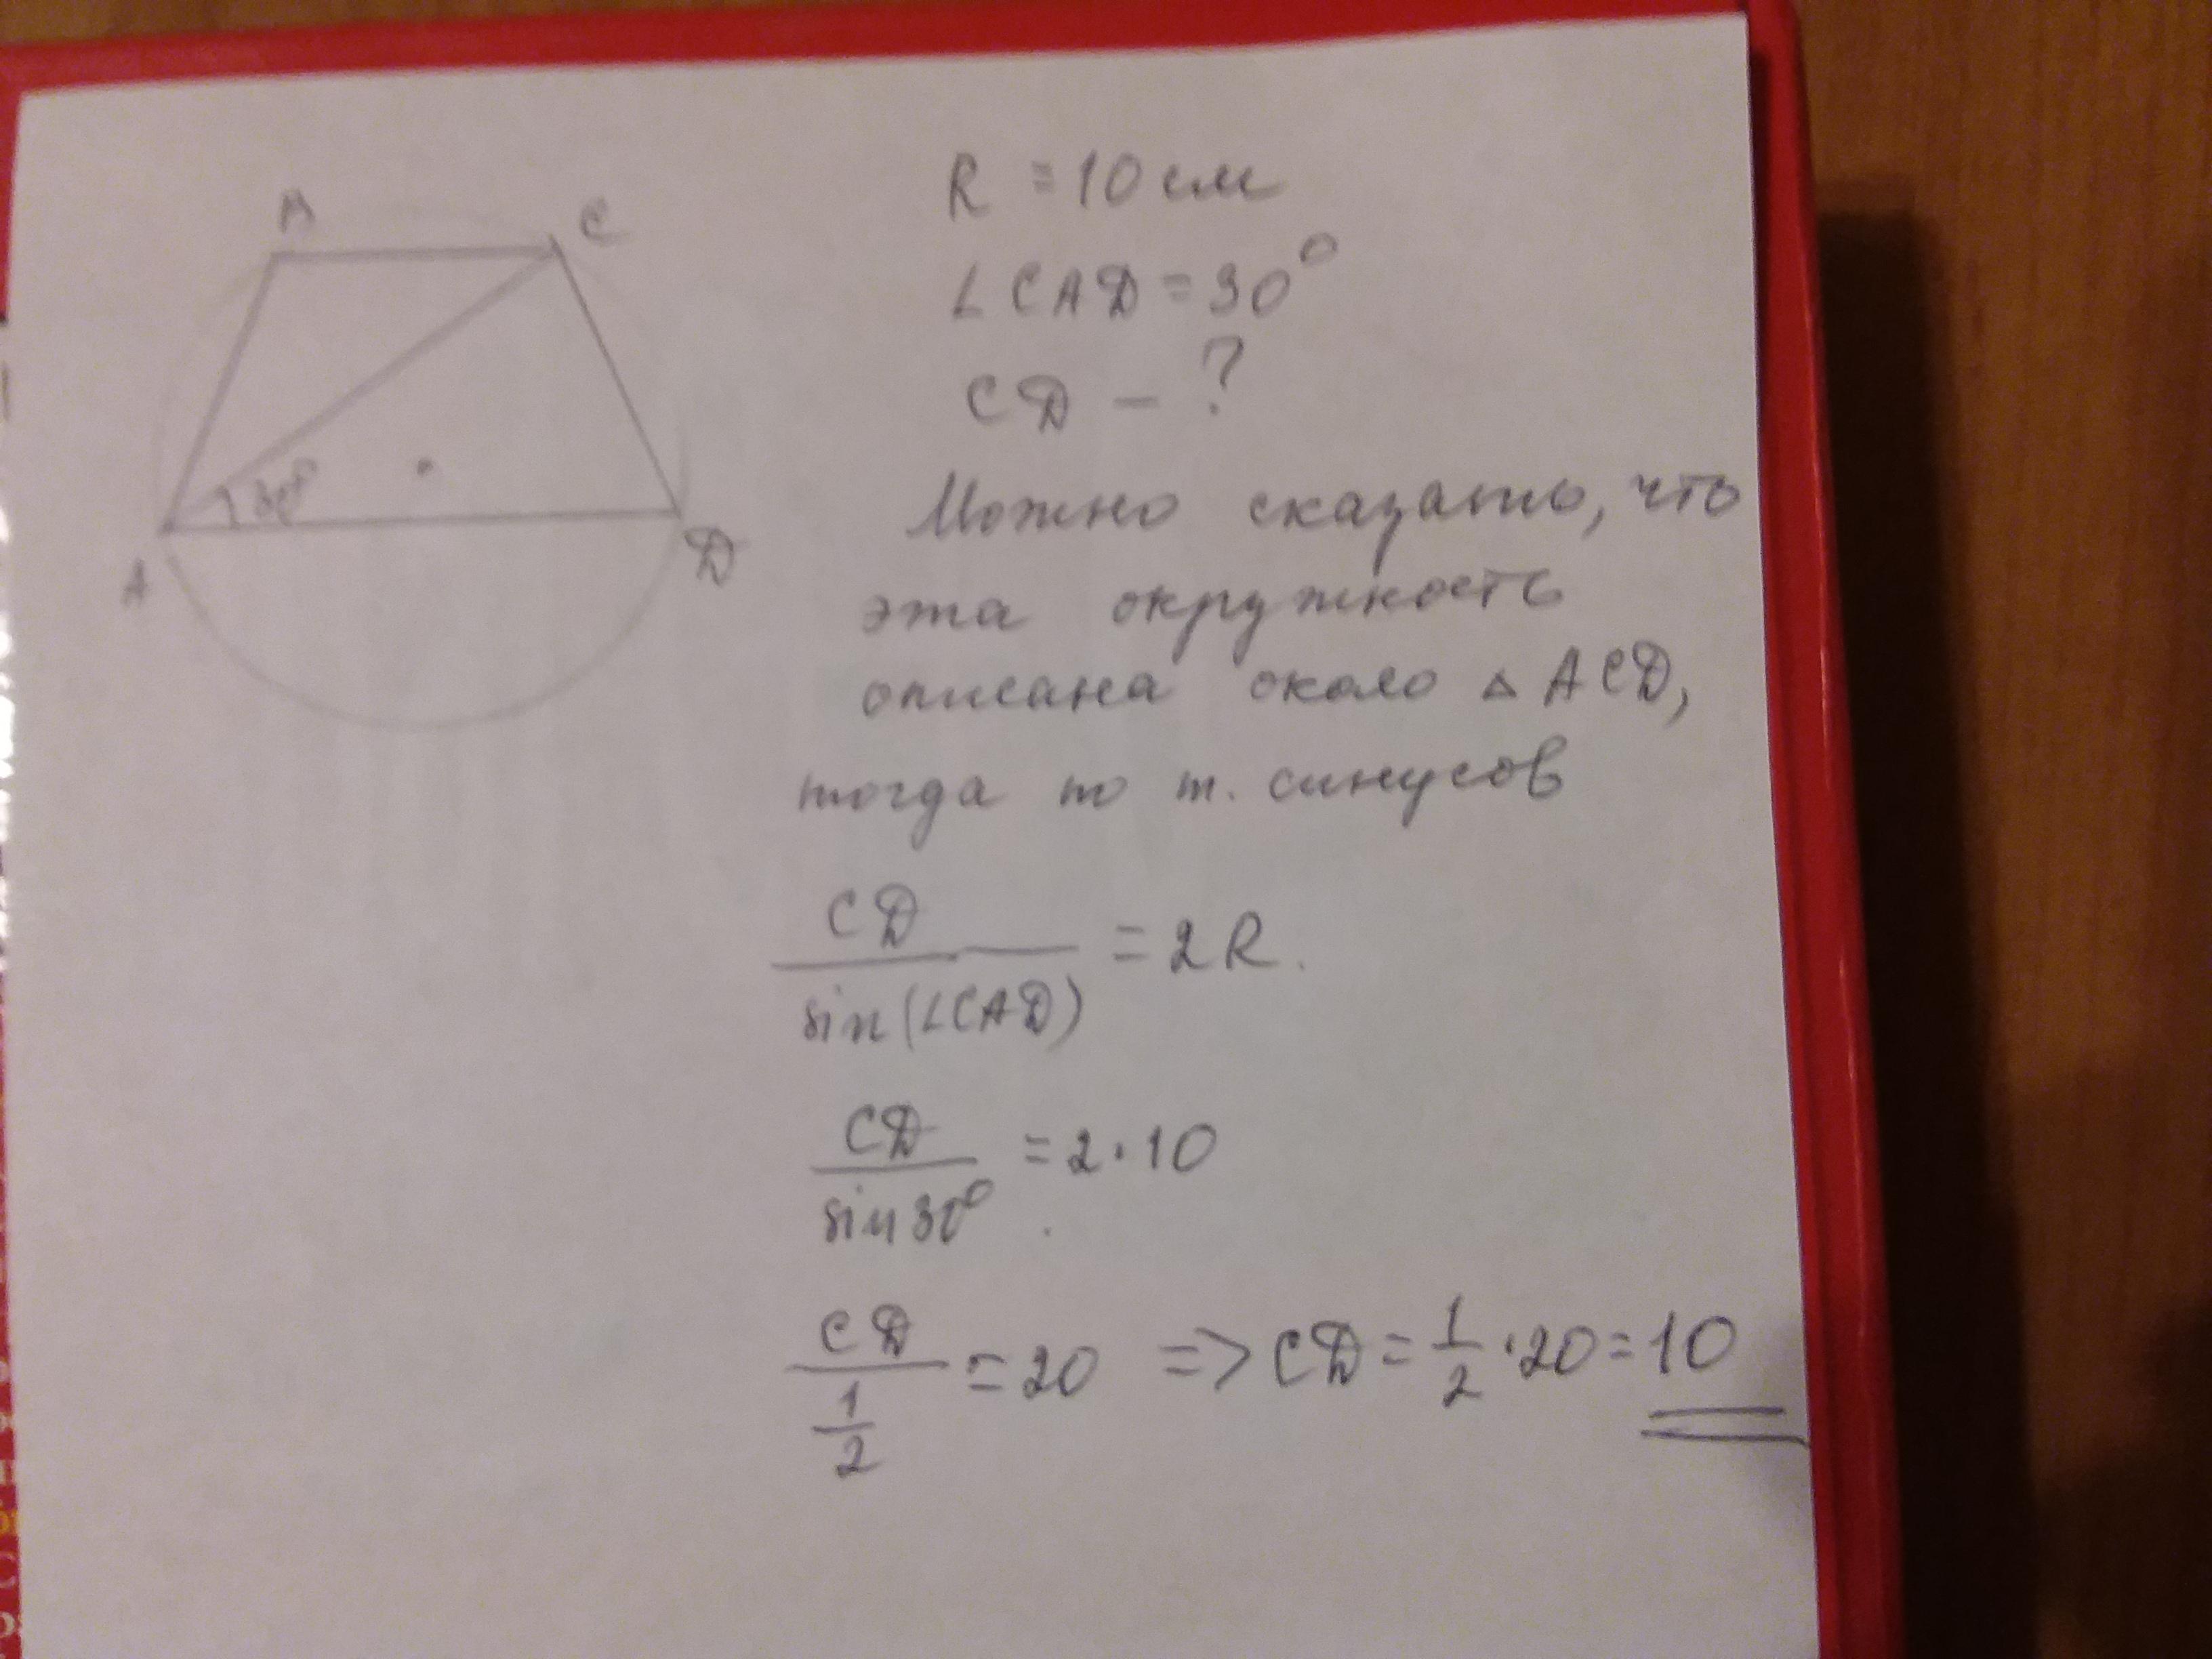 B
C
30°
A
D
R = 10 см
∠CAD = 30°
CD – ?
Можно сказать, что
эта окружность
описана около △ ACD,
тогда по т. синусов
CD / sin(∠CAD) = 2R.
CD / sin30° = 2·10
CD / 1/2 = 20 => CD = 1/2 · 20 = 10